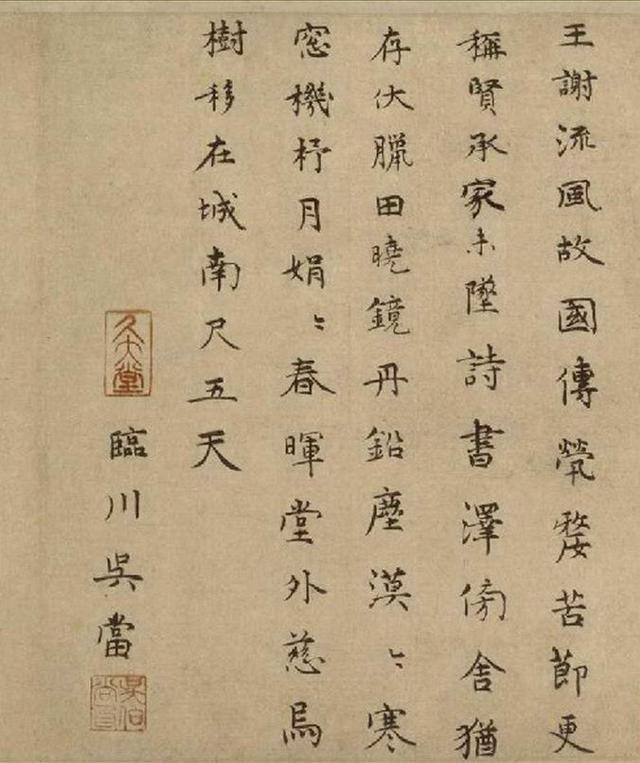 王謝流風故國傳煢嫠苦節更
稱賢承家未墜詩書澤傍舍猶
存伏臘田曉鏡丹鉛塵漠〻寒
窓機杼月娟〻春暉堂外慈烏
樹移在城南尺五天
久大堂
臨川吳當
吳伯尚